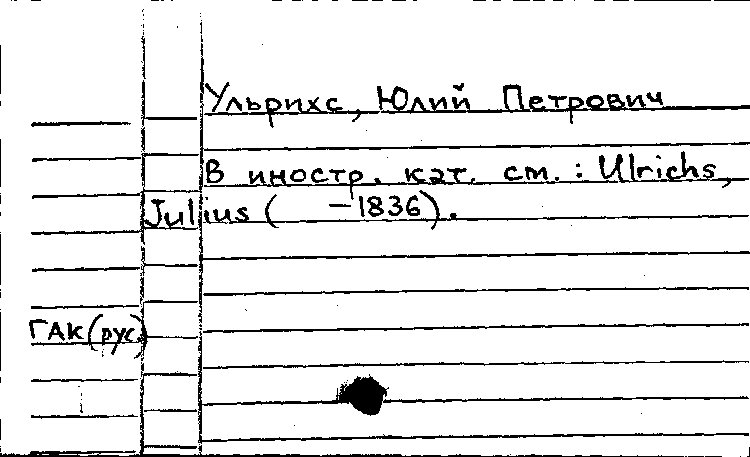 Ульрихс, Юлий Петрович
В иностр. кат. см.: Ulrichs,
Julius (   -1836).
ГАК (рус.)